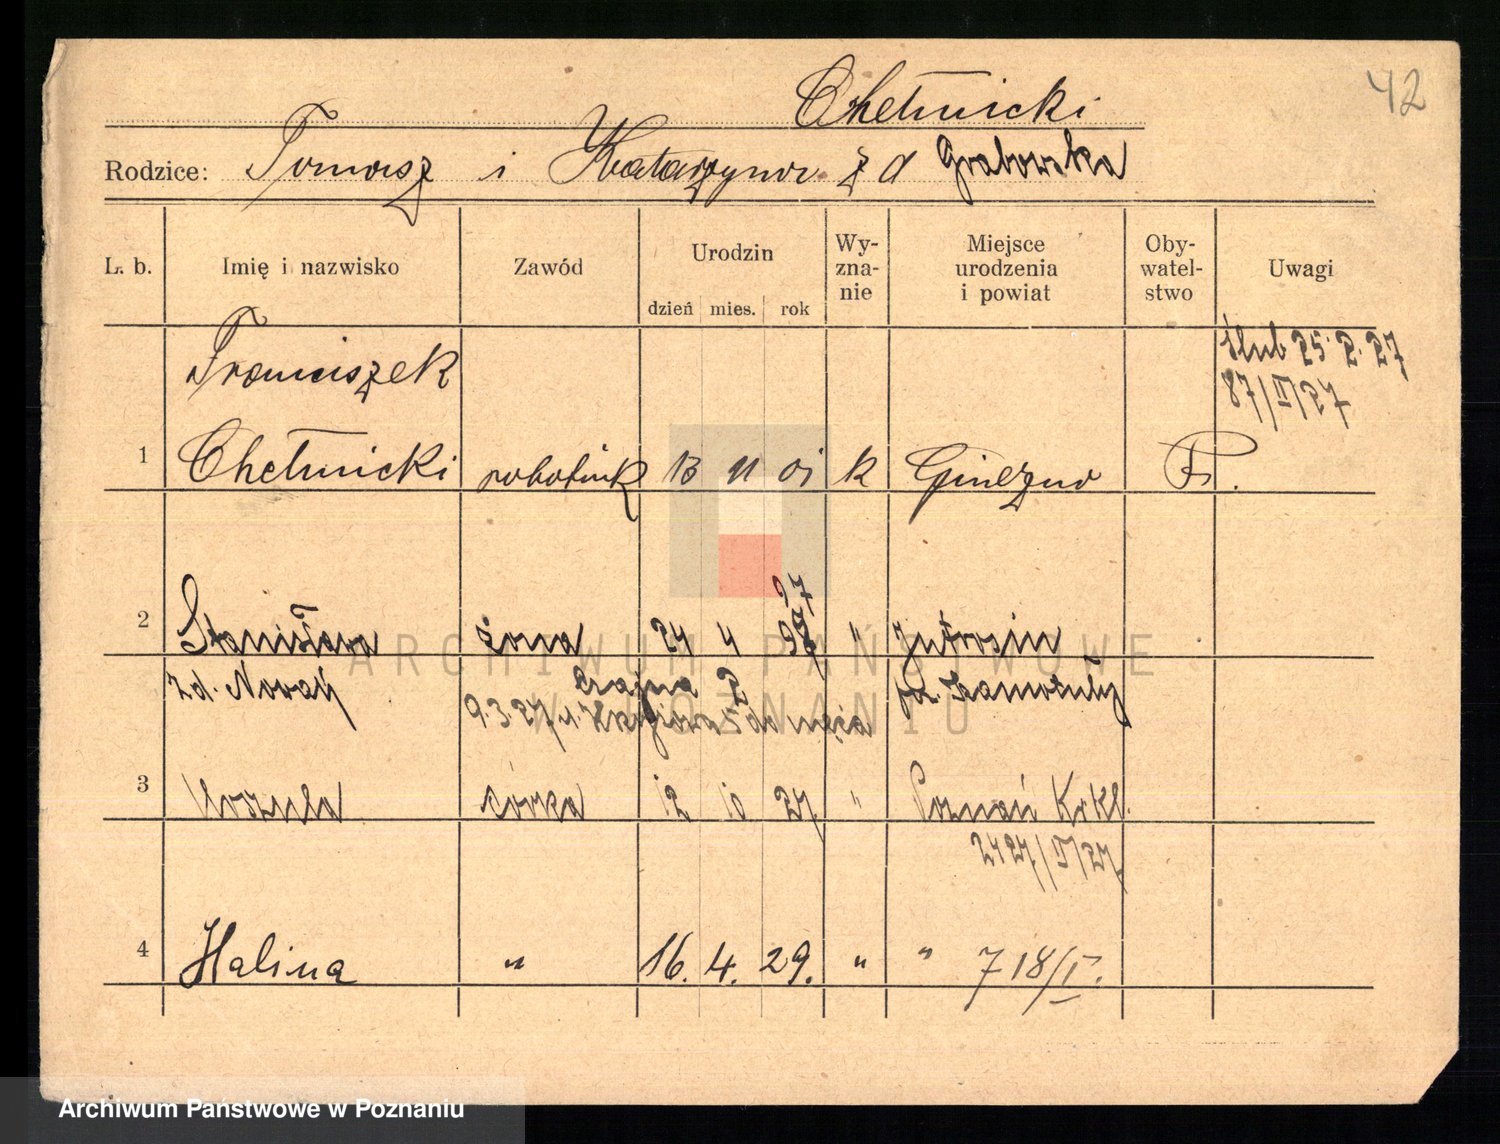 42
Chełmicki
Rodzice: Tomasz i Katarzyna z d Grabowska
L. b. Imię i nazwisko Zawód Urodzin dzień mies. rok Wy-zna-nie Miejsce urodzenia i powiat Oby-watel-stwo Uwagi
Franciszek ślub 25.2.27
87/II/27
1 Chełmicki robotnik 13 11 01 k Gniezno P.
2 Stanisława żona 24 4 " Jutrosin
z d. Nowak
9.3.27 do męża
3 Urszula córka 12 10 27 " Poznań
2427/I/27
4 Halina " 16. 4. 29. " " 718/I.
ARCHIWUM PAŃSTWOWE
W POZNANIU
Archiwum Państwowe w Poznaniu